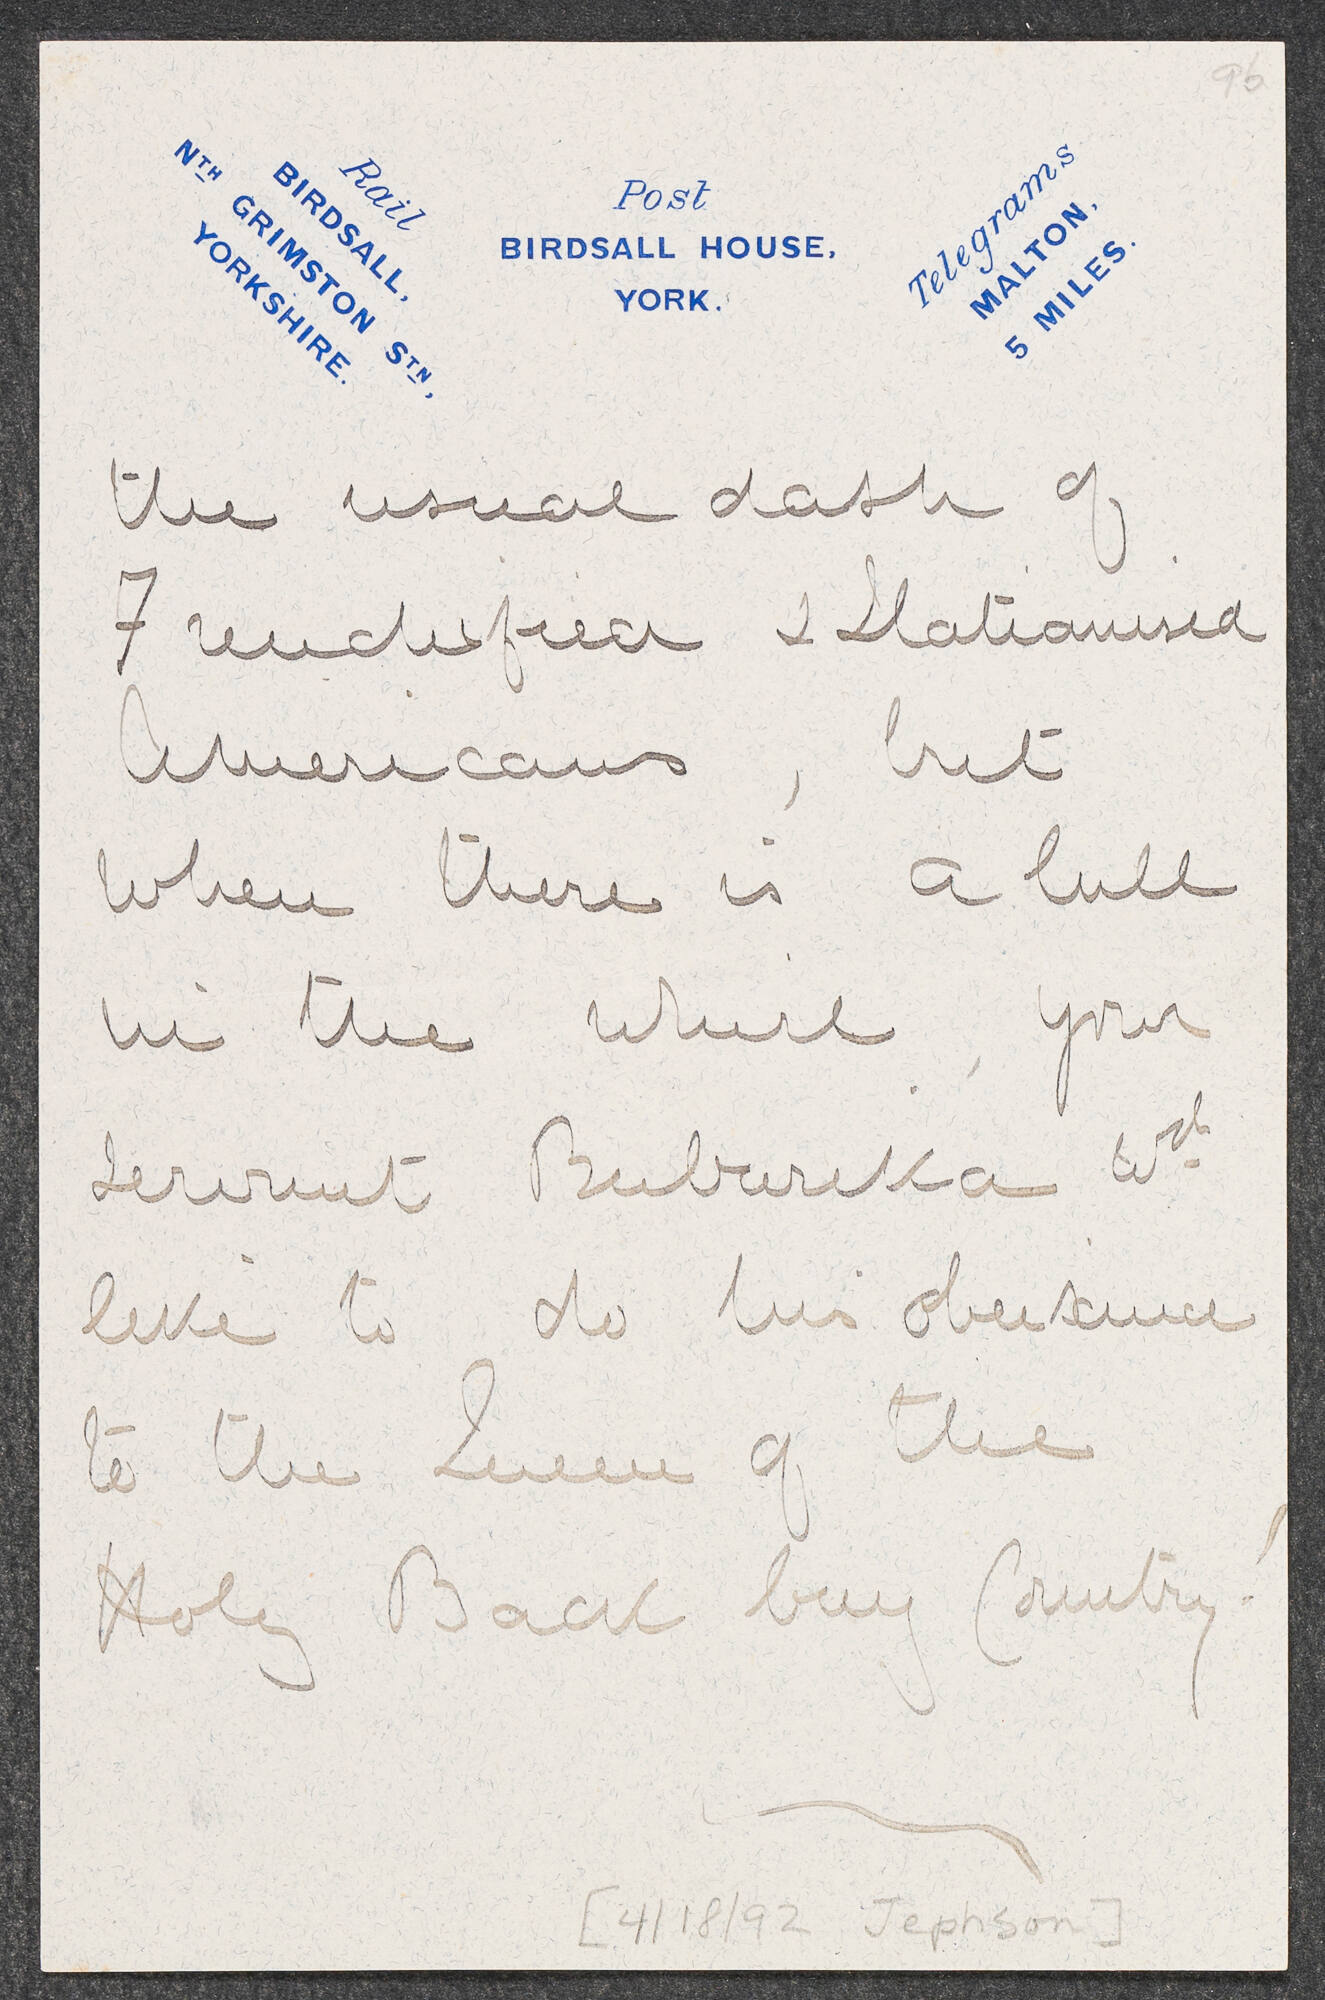 96
Rail
BIRDSALL,
NTH GRIMSTON STN,
YORKSHIRE.
Post
BIRDSALL HOUSE,
YORK.
Telegrams
MALTON,
5 MILES.
the usual dash of
Frenchified & Italianised
Americans, but
when there is a lull
in the whirl, your
servant Bubureka wd
like to do his obeisance
to the Queen of the
Holy Back bay Country!
[4/18/92 Jephson]